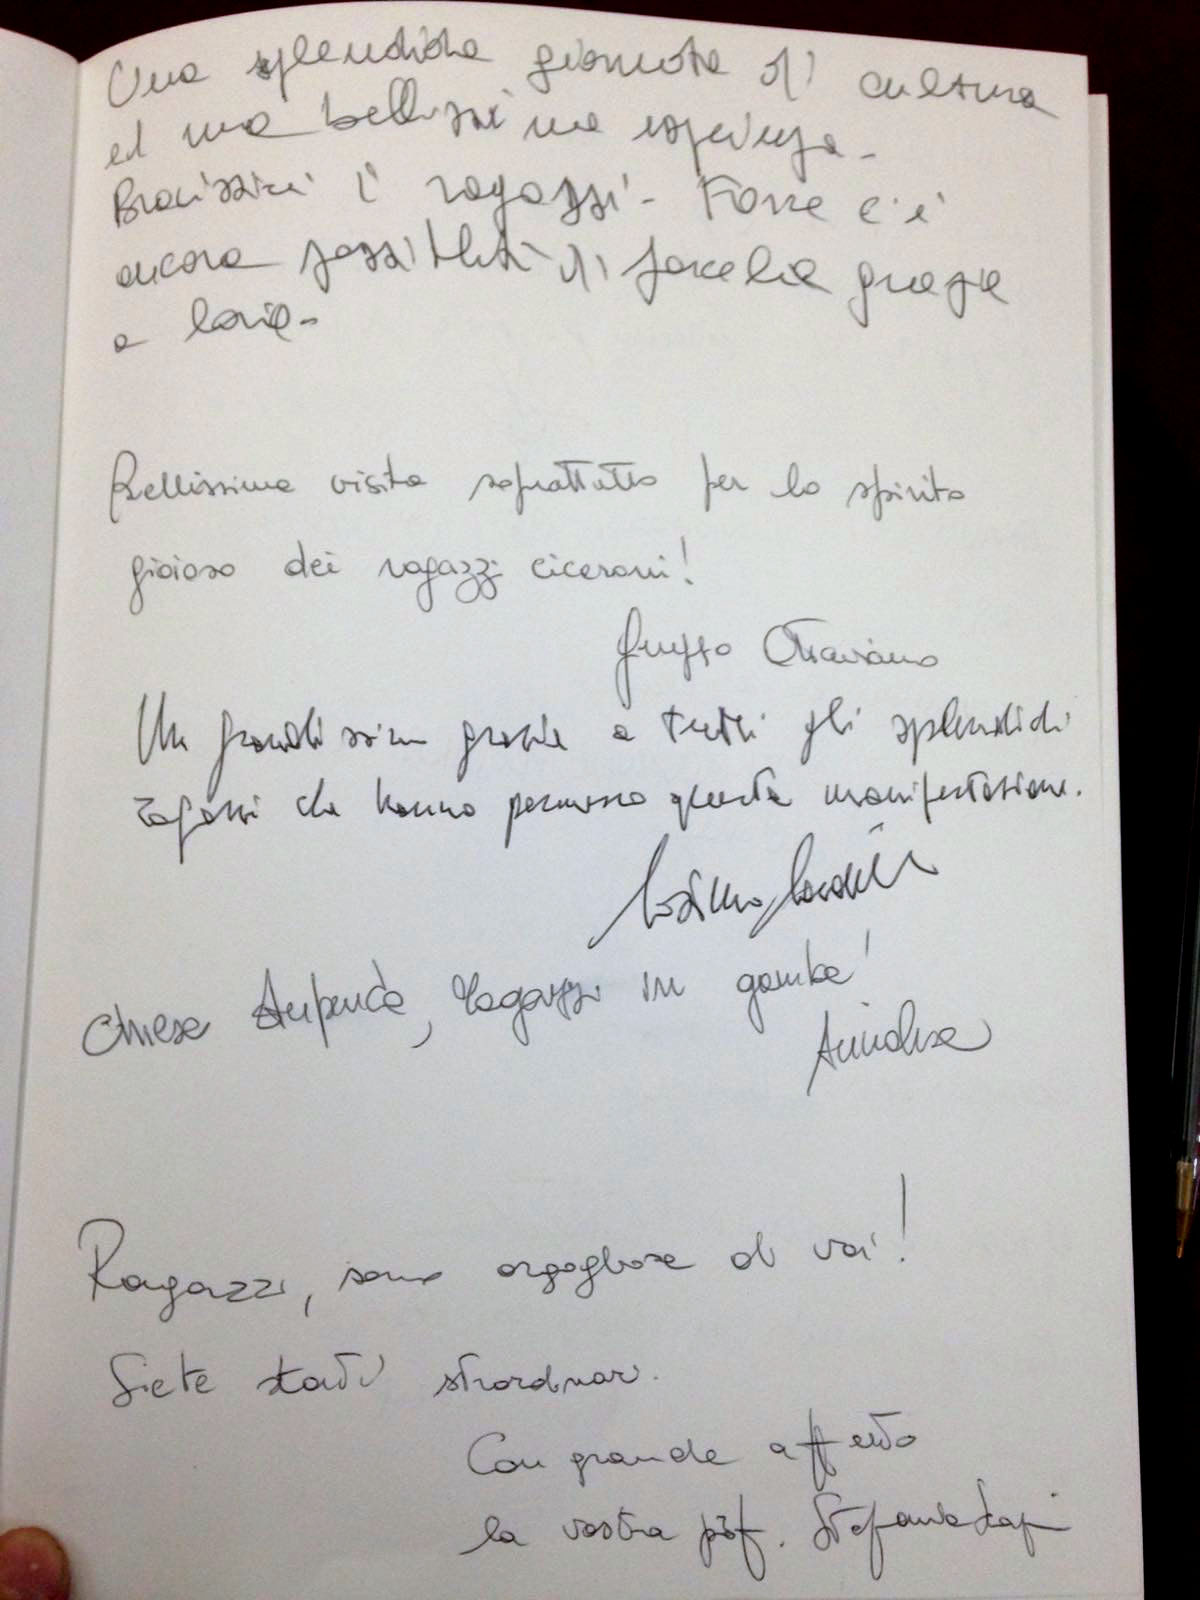 Una splendida giornata di cultura
ed una bellissima esperienza -
Bravissimi i ragazzi - Forse c'è
ancora possibilità di farcela grazie
a loro -
Bellissima visita soprattutto per lo spirito
gioioso dei ragazzi ciceroni!
Gruppo Ottaviano
Un grandissimo grazie a tutti gli splendidi
ragazzi che hanno permesso questa manifestazione.
Chiesa stupenda, ragazzi in gamba!
Annalisa
Ragazzi, sono orgogliosa di voi!
Siete stati straordinari.
Con grande affetto
la vostra prof. Stefania